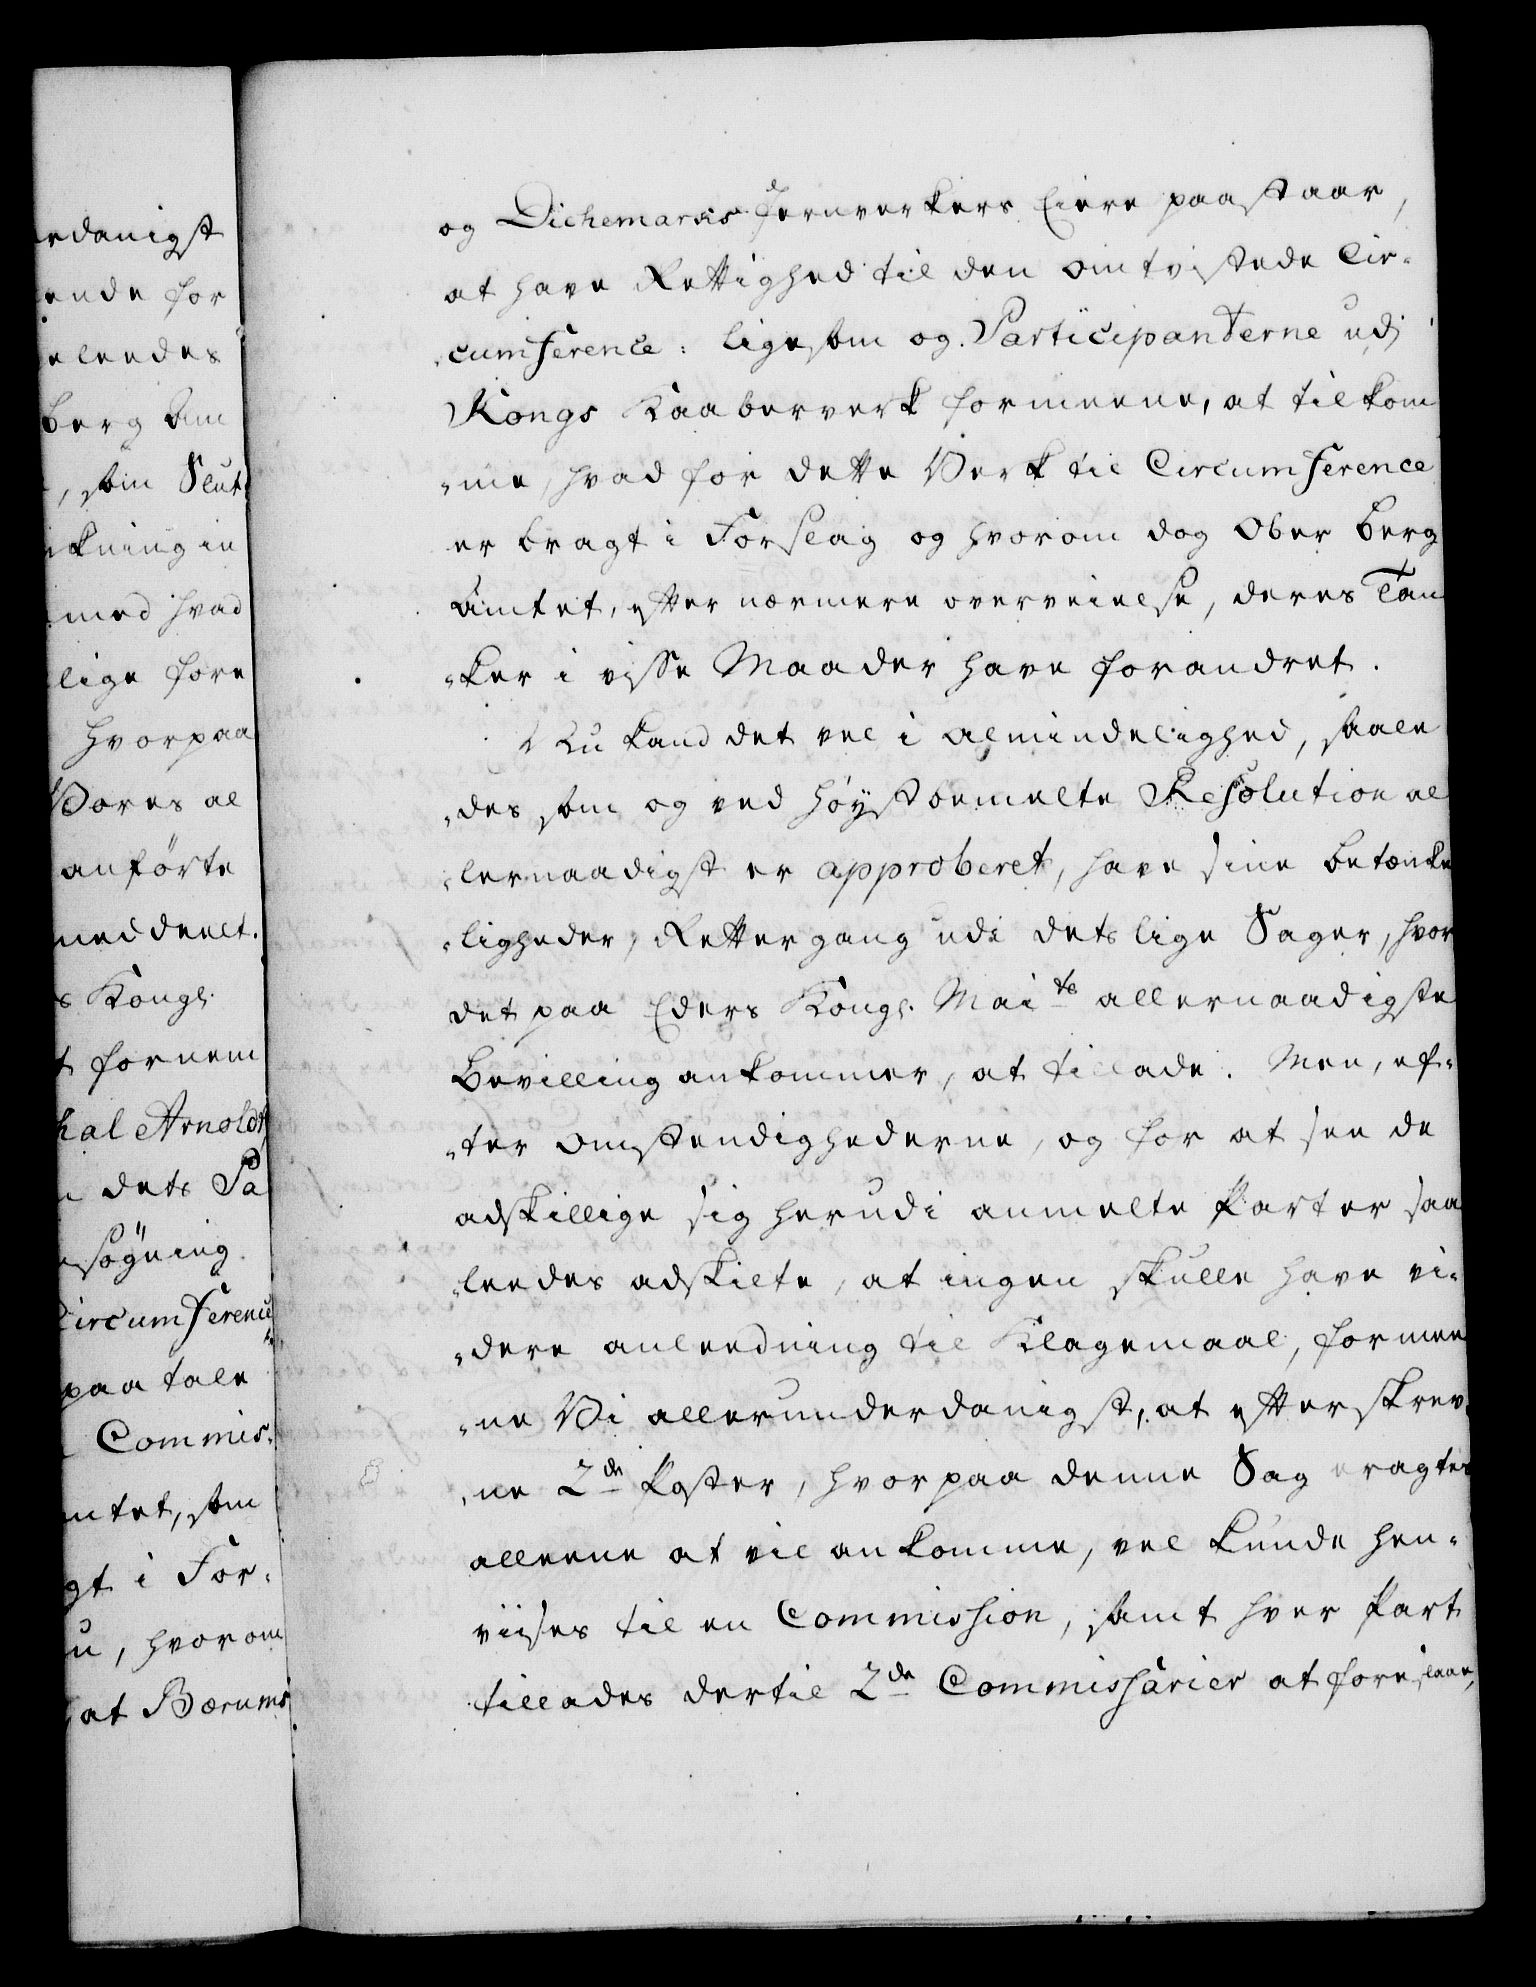 erdanigst
ende for
eleedes
berg Am
, som Slut
kning in
med hvad
lige fore
hvorpaa
Vores al
anförte
meddeelt.
s Kongl.
t fornem
hal Arnoldt
dets Pa
söyning
Circumference
paatale
Commis
mtet, som
gt i For
u, hvorom
at Bærums
og Dichemarks Jernverkers Eiere paastaar,
at have Rettighed til den omtvistede Cir-
cumference: ligesom og Participanterne udi
Kongs Kaaberverk formeene, at tilkom
me, hvad for dette Verk til Circumference
er bragt i Forslag og hvorom dog Ober Berg
Amtet, efter nærmere overveielse, deres Tan
ker i visse Maader have forandret.
Nu kand det vel i Almindelighed, saale
des som og ved höystbemelte Resolution al
lernaadigst er approberet, have sine betænke
ligheder, Rettergang udi dets lige Sager, hvor
det paa Eders Kongl. Maits allernaadigste
Bevilling ankommer, at tillade. Men, ef-
ter Omstendighederne, og for at see de
adskillige sig herudi anmelte Parter saa
leedes adskilte, at ingen skulle have vi-
dere anleedning til Klagemaal, formee
ne Vi allerunderdanigst, at efterskrev
ne 2de Poster, hvorpaa denne Sag eragtes
alleene at vil ankomme, vel kunde hen-
viises til en Commission, samt hver Part
tillades dertil 2de Commissarier at foreslaae,